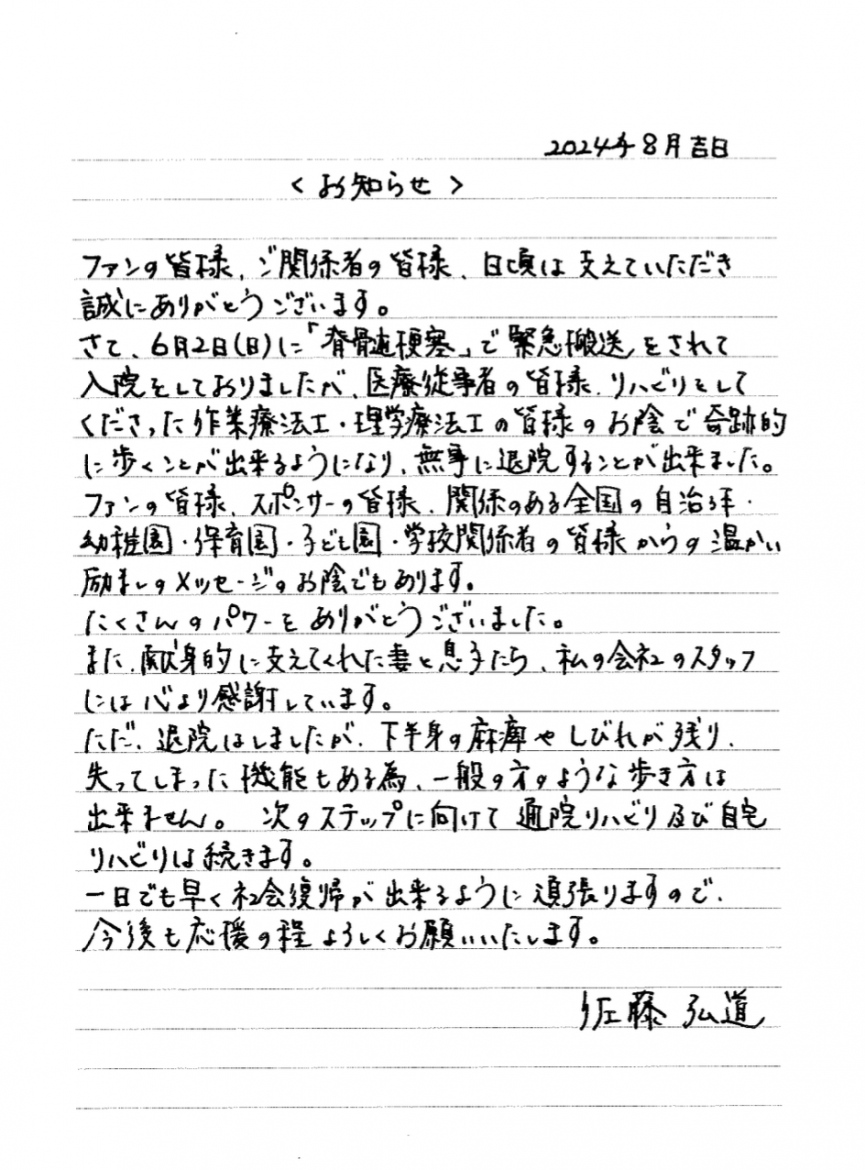 2024年8月吉日
<お知らせ>
ファンの皆様、ご関係者の皆様、日頃は支えていただき
誠にありがとうございます。
さて、6月2日(日)に「脊髄梗塞」で緊急搬送をされて
入院をしておりましたが、医療従事者の皆様、リハビリをして
くださった作業療法士・理学療法士の皆様のお陰で奇跡的
に歩くことが出来るようになり、無事に退院することが出来ました。
ファンの皆様、スポンサーの皆様、関係のある全国の自治体・
幼稚園・保育園・子ども園・学校関係者の皆様からの温かい
励ましのメッセージのお陰でもあります。
たくさんのパワーをありがとうございました。
また、献身的に支えてくれた妻と息子たち、私の会社のスタッフ
には心より感謝しています。
ただ、退院はしましたが、下半身の麻痺やしびれが残り、
失ってしまった機能もある為、一般の方のような歩き方は
出来ません。 次のステップに向けて通院リハビリ及び自宅
リハビリは続きます。
一日でも早く社会復帰が出来るように頑張りますので、
今後も応援の程よろしくお願いいたします。
佐藤 弘道